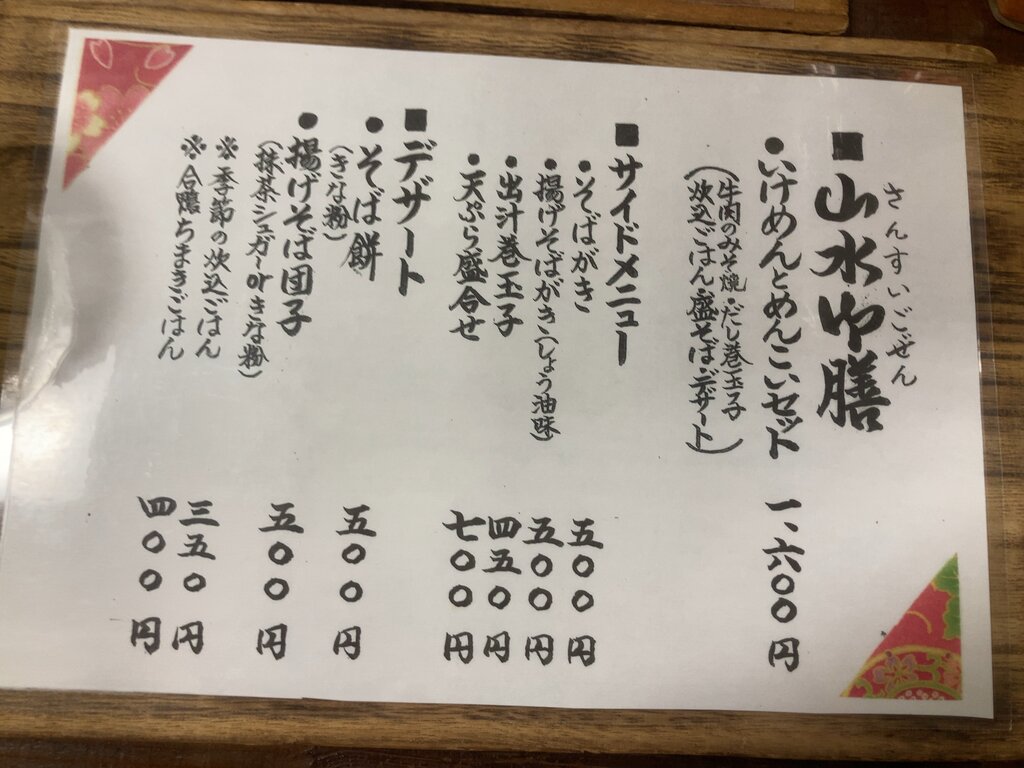 ■山水御膳
さんすいごぜん
●いけめんとめんこいセット 一、六〇〇円
(牛肉のみそ焼・だし巻玉子
炊込ごはん・盛そば・デザート)
■サイドメニュー
●そばがき 五〇〇円
●揚げそばがき(しょう油味) 五〇〇円
●出汁巻玉子 四五〇円
●天ぷら盛合せ 七〇〇円
■デザート
●そば餅 五〇〇円
(きな粉)
●揚げそば団子 五〇〇円
(抹茶シュガーorきな粉)
※季節の炊込ごはん 三五〇円
※合鴨ちまきごはん 四〇〇円